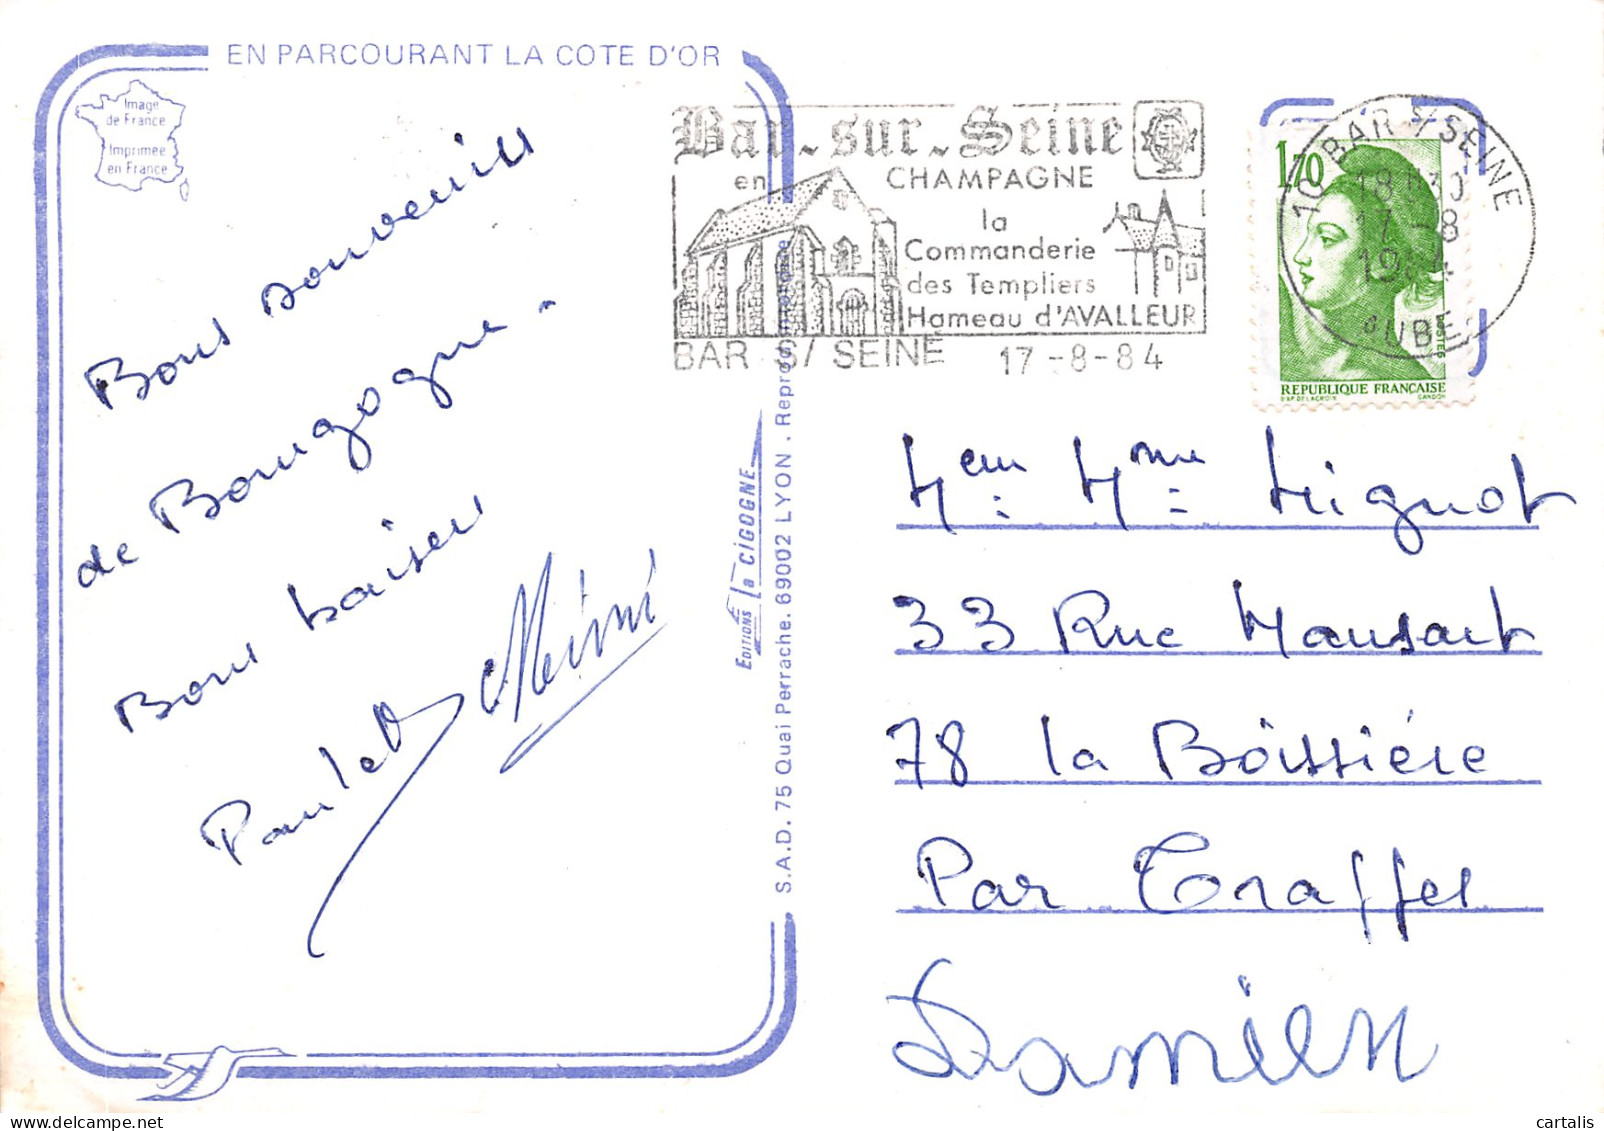 EN PARCOURANT LA COTE D'OR
Image
de France
Imprimée
en France
Bons souvenirs
de Bourgogne.
Bons baisers
Paulette Mimi
EDITIONS la CIGOGNE
S.A.D. 75 Quai Perrache. 69002 LYON . Reprod. interdite
Bar-sur-Seine
en CHAMPAGNE
la
Commanderie
des Templiers
Hameau d'AVALLEUR
BAR S/ SEINE 17-8-84
10 BAR S/ SEINE
18H30
17-8
1984
AUBE
1,70
POSTES
REPUBLIQUE FRANÇAISE
D'AP. DELACROIX GANDON
Mr et Mme Mignot
33 Rue Mansart
78 la Boissière
Par Trappes
Damien
cartalis